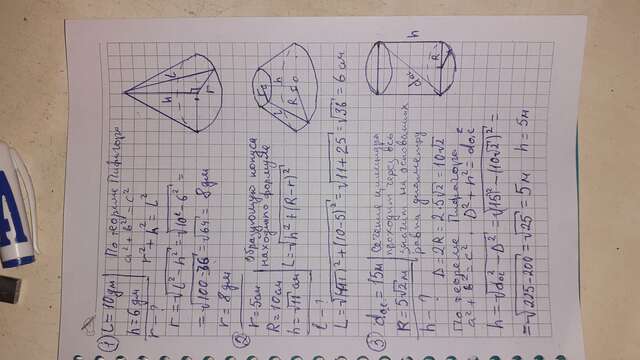 ① l = 10 дм
h = 6 дм
r - ?
По теореме Пифагора
a² + b² = c²
r² + h² = l²
r = √l² - h² = √10² - 6² =
= √100 - 36 = √64 = 8 дм
r = 8 дм
l
h
r
② r = 5 см
R = 10 см
h = √11 см
l - ?
Образующую конуса
находим по формуле
L = √h² + (R - r)²
L = √(√11)² + (10-5)² = √11 + 25 = √36 = 6 см
h
R
③ dос = 15 м
R = 5√2 м
h - ?
Сечение цилиндра
проходит через ось
значит на основаниях
равна диаметру
D = 2R = 2·5√2 = 10√2
По теореме Пифагора
a² + b² = c²
D² + h² = dос²
h = √dос² - D² = √15² - (10√2)² =
= √225 - 200 = √25 = 5 м
h = 5 м
h
R
dос